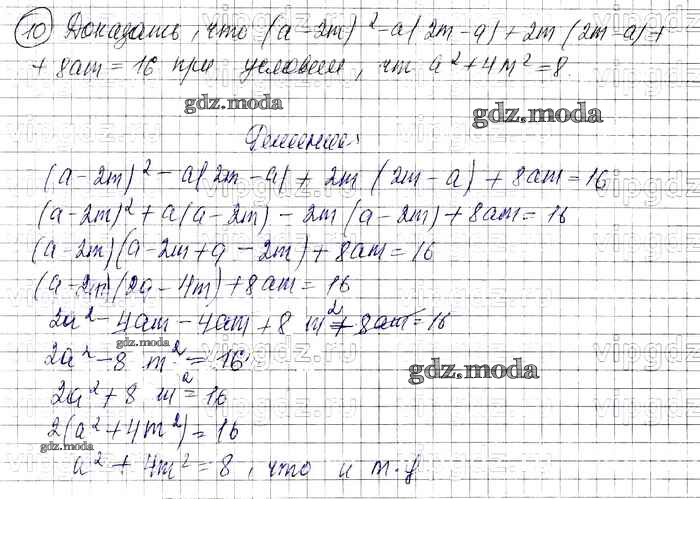 10) Доказать, что (a - 2m)² - a(2m - a) + 2m(2m - a) +
+ 8am = 16 при условии, чт a² + 4m² = 8.
gdz.moda
gdz.moda
(a - 2m)² - a(2m - a) + 2m(2m - a) + 8am = 16
(a - 2m)² + a(a - 2m) - 2m(a - 2m) + 8am = 16
(a - 2m)(a - 2m + a - 2m) + 8am = 16
(a - 2m)(2a - 4m) + 8am = 16
2a² - 4am - 4am + 8m² + 8am = 16
gdz.moda
2a² - 8m² = 16
gdz.moda
2a² + 8m² = 16
2(a² + 4m²) = 16
gdz.moda
a² + 4m² = 8, что и т.д